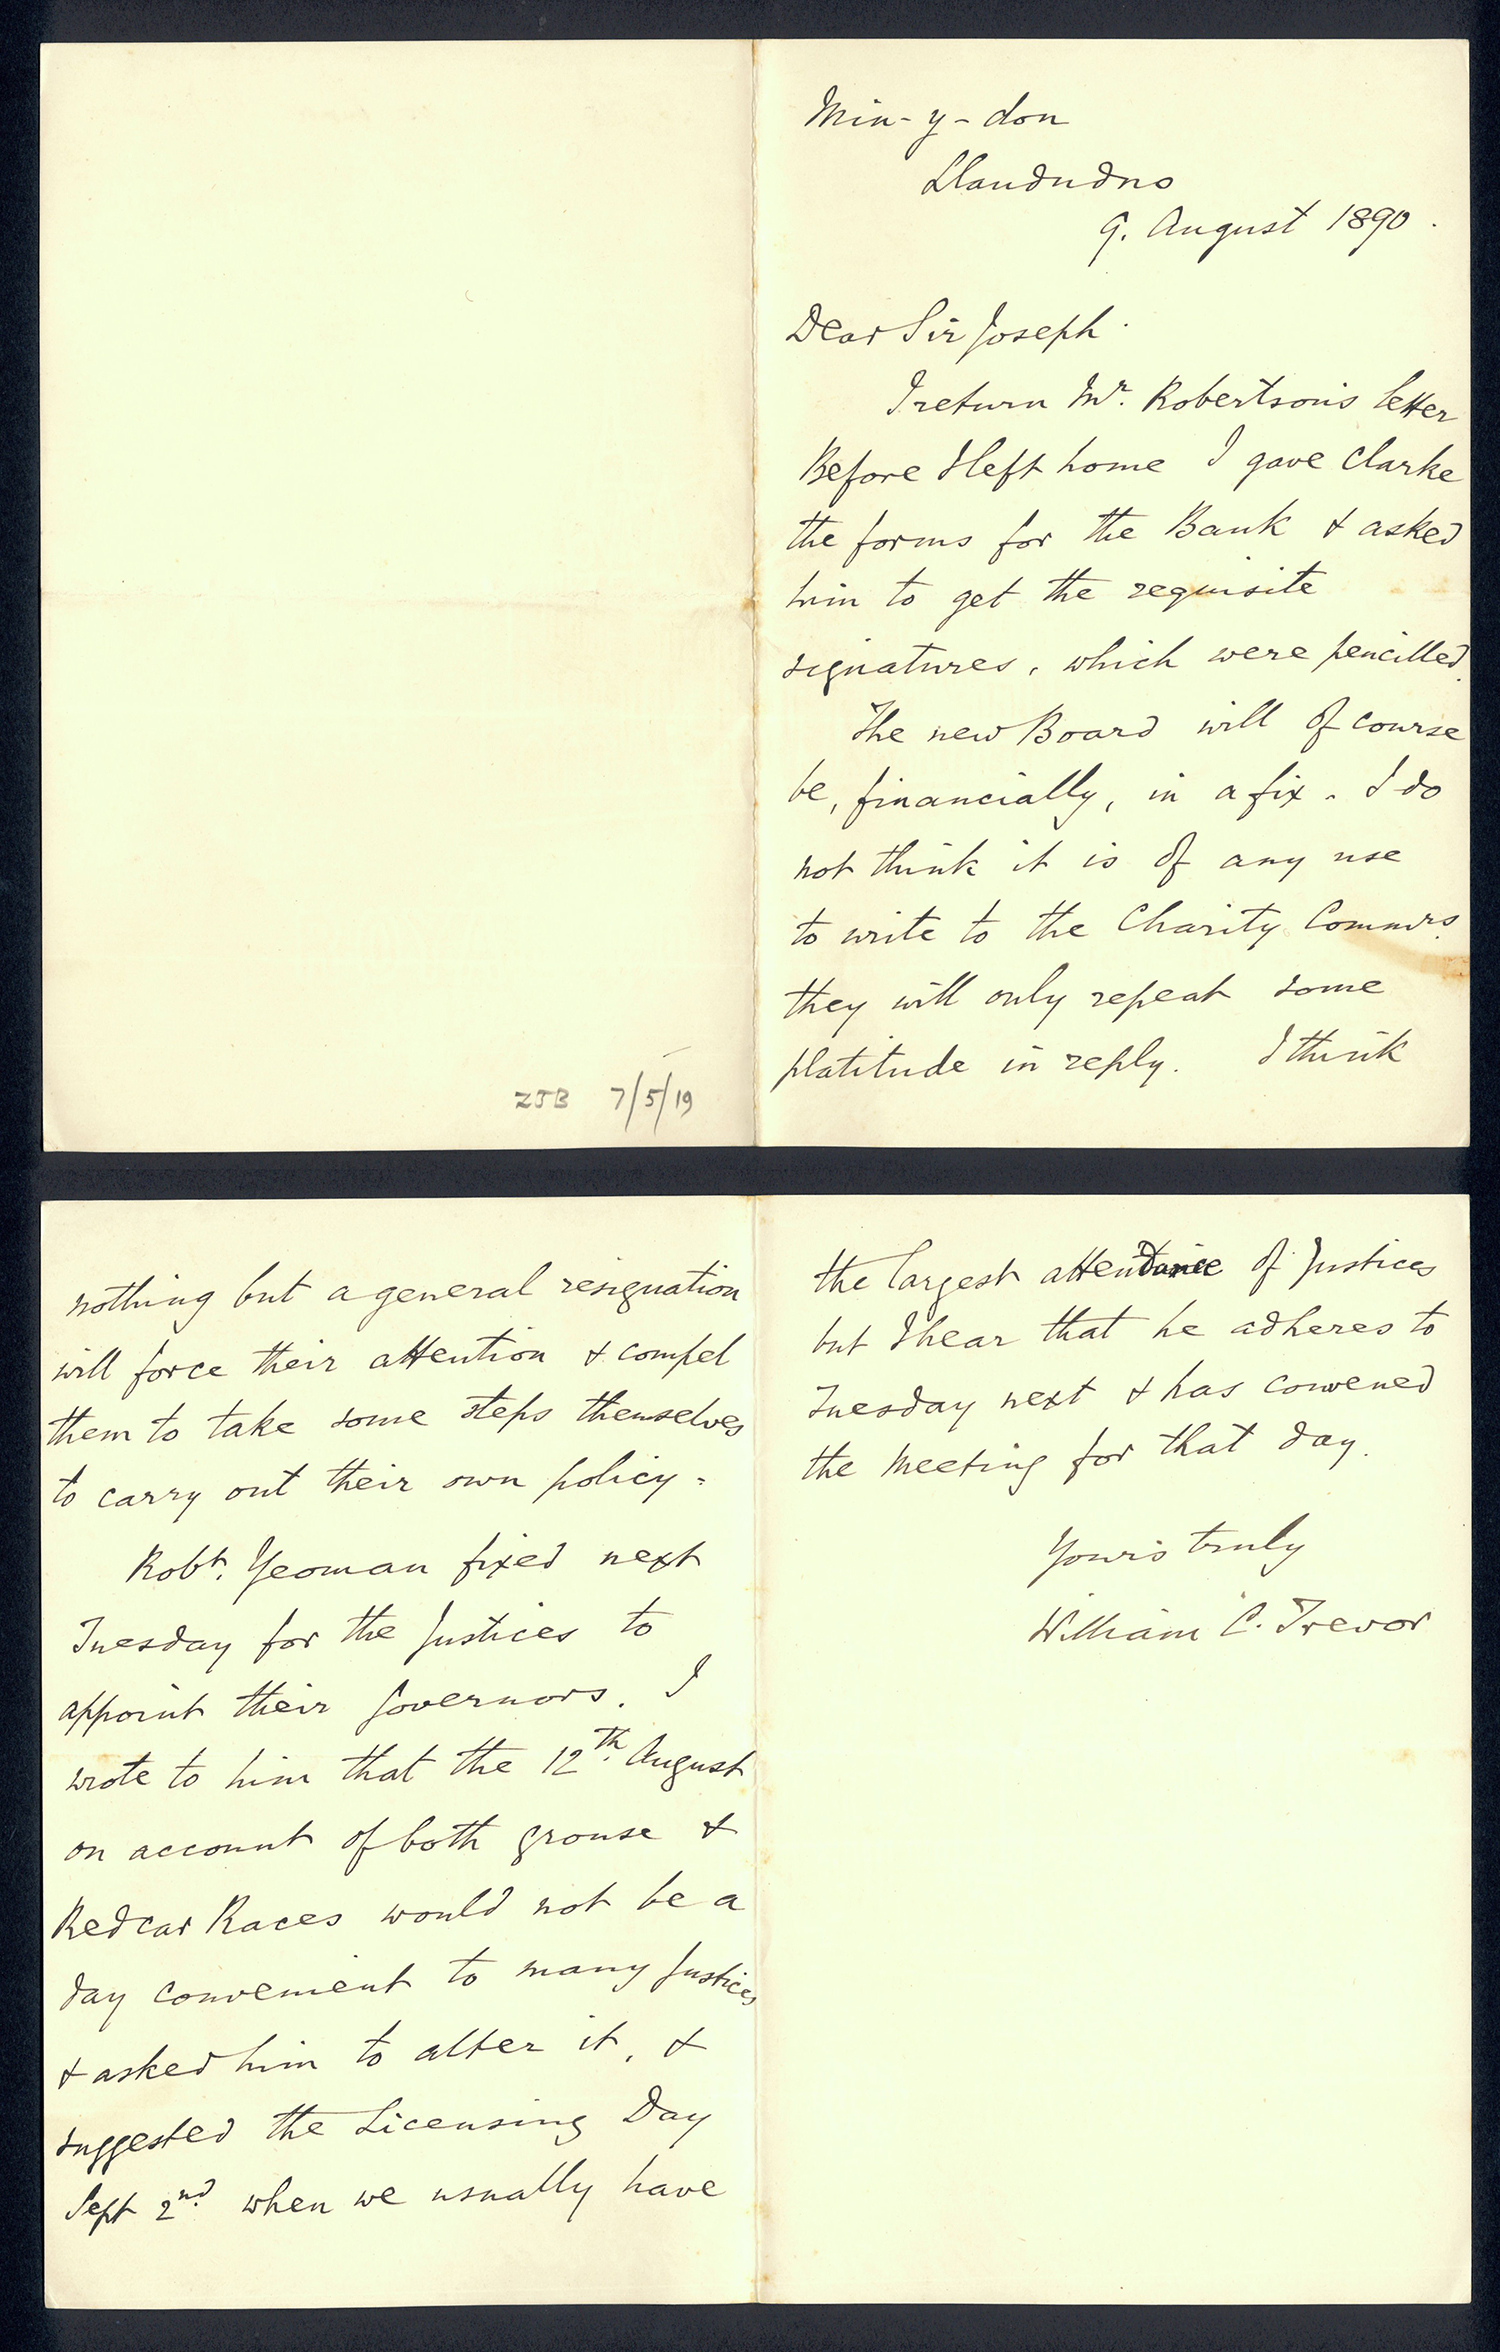 Min-y-don
Llandudno
9. August 1890.
Dear Sir Joseph.
I return Mr. Robertson's letter
Before I left home I gave Clarke
the forms for the Bank & asked
him to get the requisite
signatures, which were pencilled.
The new Board will of course
be, financially, in a fix. I do
not think it is of any use
to write to the Charity Commrs.
they will only repeat some
platitude in reply. I think
ZJB 7/5/19
nothing but a general resignation
will force their attention & compel
them to take some steps themselves
to carry out their own policy.
Robt. Yeoman fixed next
Tuesday for the Justices to
appoint their Governors. I
wrote to him that the 12th. August
on account of both grouse &
Redcar Races would not be a
day convenient to many Justices
& asked him to alter it, &
suggested the Licensing Day
Sept 2nd. when we usually have
the largest attendance of Justices
but I hear that he adheres to
Tuesday next & has convened
the meeting for that day.
Yours truly
William C. Trevor